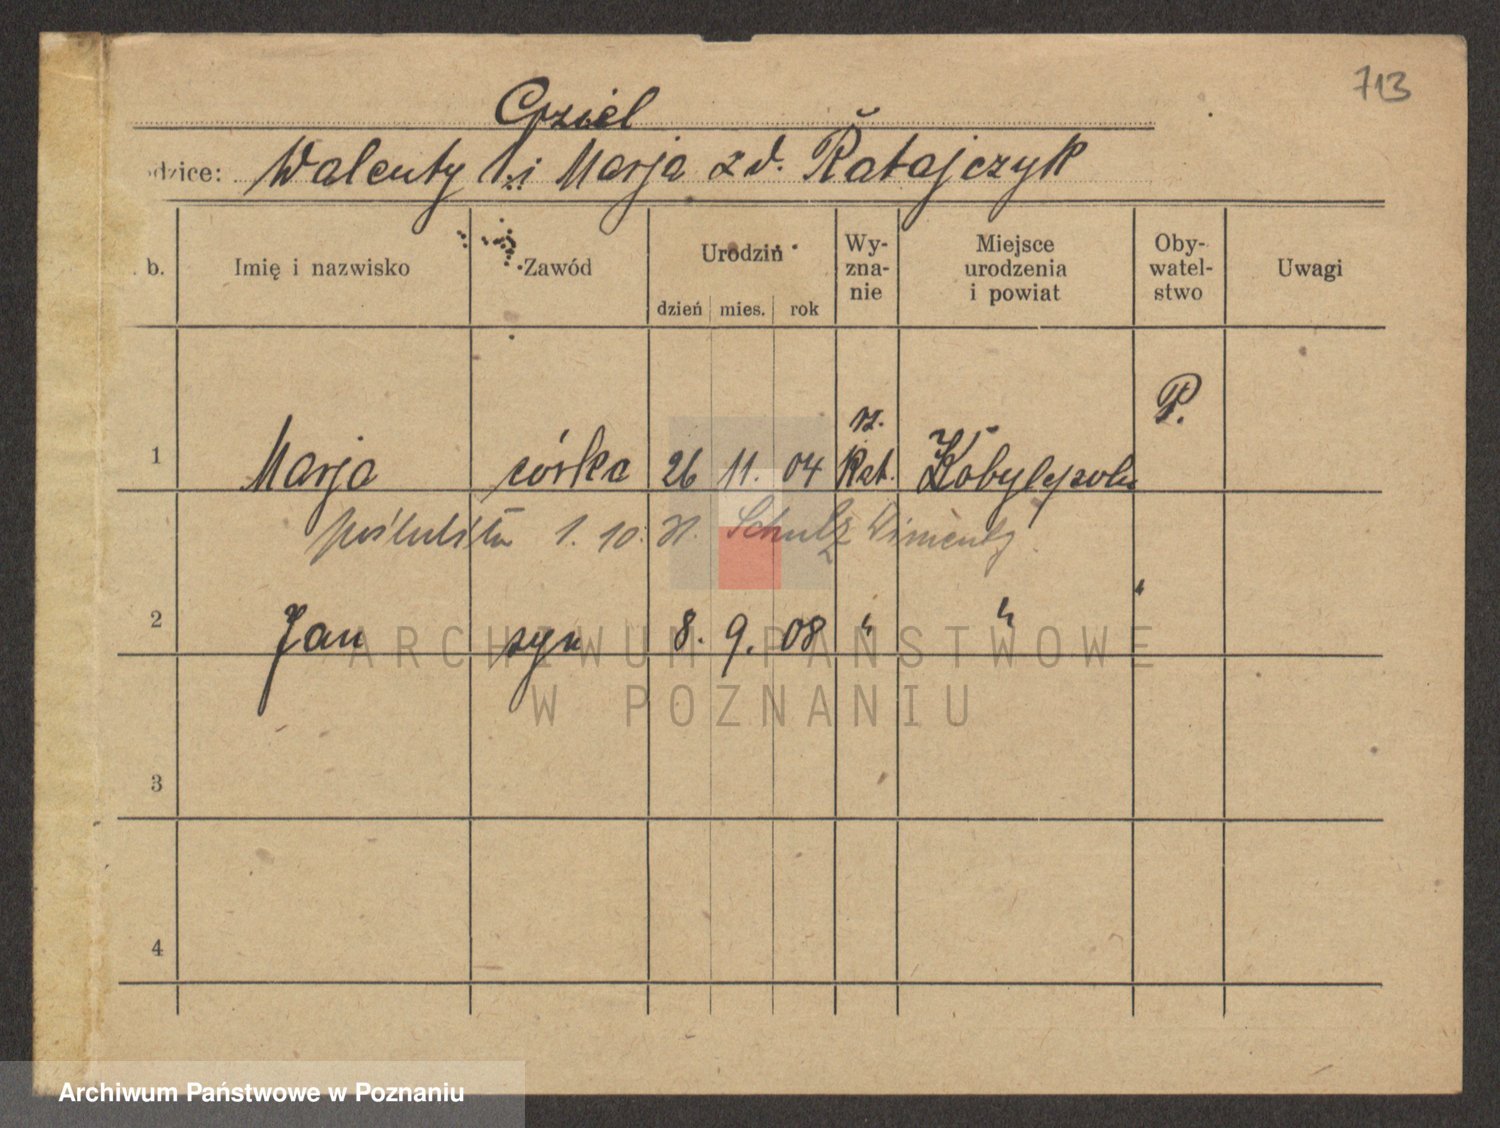 713
Cziel
odzice: Walenty i Marja z d. Ratajczyk
b. Imię i nazwisko Zawód Urodzin dzień mies. rok Wy-zna-nie Miejsce urodzenia i powiat Oby-watel-stwo Uwagi
1 Marja córka 26 11. 04 rz. Kat. Kobylepole P.
1. 10. Schulz
2 Jan syn 8. 9. 08 " " "
3
4
ARCHIWUM PAŃSTWOWE
W POZNANIU
Archiwum Państwowe w Poznaniu